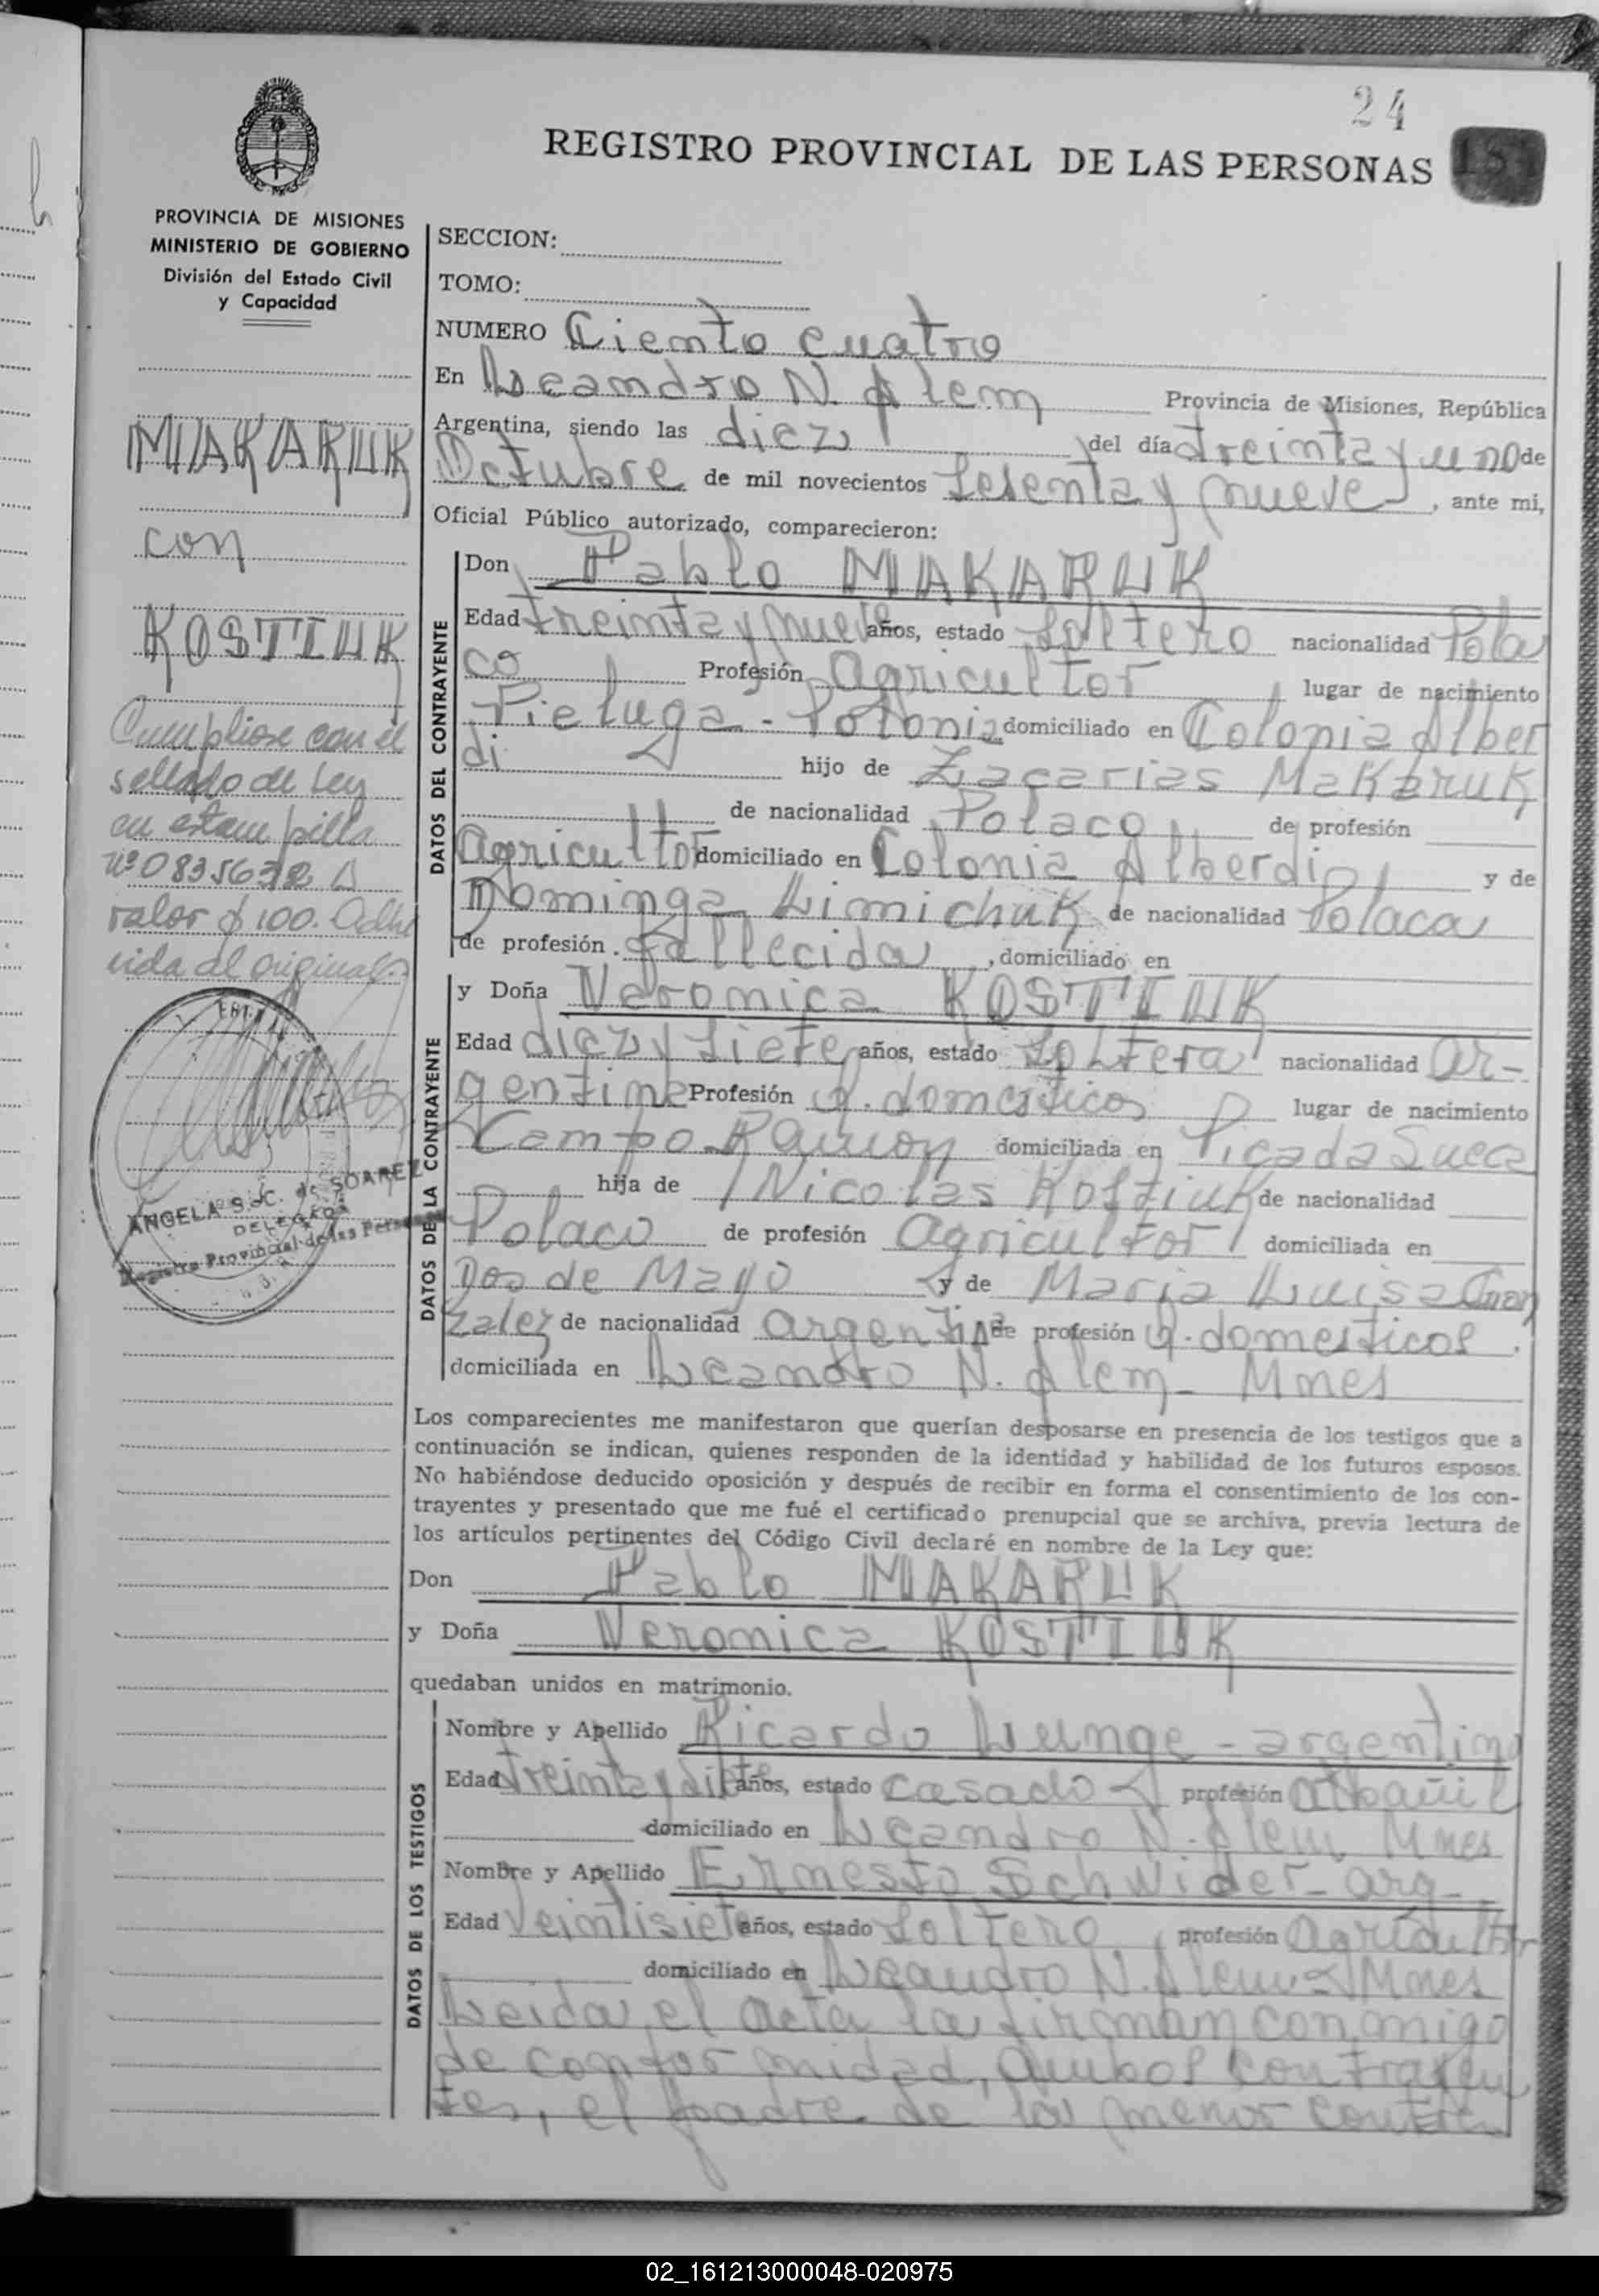 24
REGISTRO PROVINCIAL DE LAS PERSONAS
PROVINCIA DE MISIONES
MINISTERIO DE GOBIERNO
División del Estado Civil
y Capacidad
MAKARUK
con
KOSTIUK
Cumpliose con el
sellado de Ley
en estampilla
Nº 0835632 A
valor $ 100. Adhe
rida al original
ANGELA S. C. de SOAREZ
DELEGADA
Registro Provincial de las Personas
SECCION:
TOMO:
NUMERO Ciento cuatro
En Leandro N. Alem Provincia de Misiones, República
Argentina, siendo las diez del día treinta y uno de
Octubre de mil novecientos sesenta y nueve, ante mi,
Oficial Público autorizado, comparecieron:
DATOS DEL CONTRAYENTE
Don Pablo MAKARUK
Edad treinta y nueve años, estado soltero nacionalidad Pola
co Profesión Agricultor lugar de nacimiento
Pieluga - Polonia domiciliado en Colonia Alber
di hijo de Zacarias Makaruk
de nacionalidad Polaco de profesión
Agricultor domiciliado en Colonia Alberdi y de
Dominga Limichuk de nacionalidad Polaca
de profesión fallecida, domiciliado en
DATOS DE LA CONTRAYENTE
y Doña Veronica KOSTIUK
Edad diez y siete años, estado soltera nacionalidad ar-
gentina Profesión q. domesticos lugar de nacimiento
Campo Ramon domiciliada en Picada Sueca
hija de Nicolas Kostiuk de nacionalidad
Polaco de profesión Agricultor domiciliada en
Dos de Mayo y de Maria Luisa Gon
zalez de nacionalidad argentina de profesión q. domesticos.
domiciliada en Leandro N. Alem - Mnes
Los comparecientes me manifestaron que querían desposarse en presencia de los testigos que a
continuación se indican, quienes responden de la identidad y habilidad de los futuros esposos.
No habiéndose deducido oposición y después de recibir en forma el consentimiento de los con-
trayentes y presentado que me fué el certificado prenupcial que se archiva, previa lectura de
los artículos pertinentes del Código Civil declaré en nombre de la Ley que:
Don Pablo MAKARUK
y Doña Veronica KOSTIUK
quedaban unidos en matrimonio.
DATOS DE LOS TESTIGOS
Nombre y Apellido Ricardo Lunge - argentino
Edad treinta y siete años, estado casado profesión albañil
domiciliado en Leandro N. Alem Mnes
Nombre y Apellido Ernesto Schnider - arg -
Edad veintisiete años, estado soltero, profesión agricultor
domiciliado en Leandro N. Alem Mnes
Leida el acta la firman conmigo
de conformidad, ambos contrayen
tes, el padre de la menor contra
02_161213000048-020975